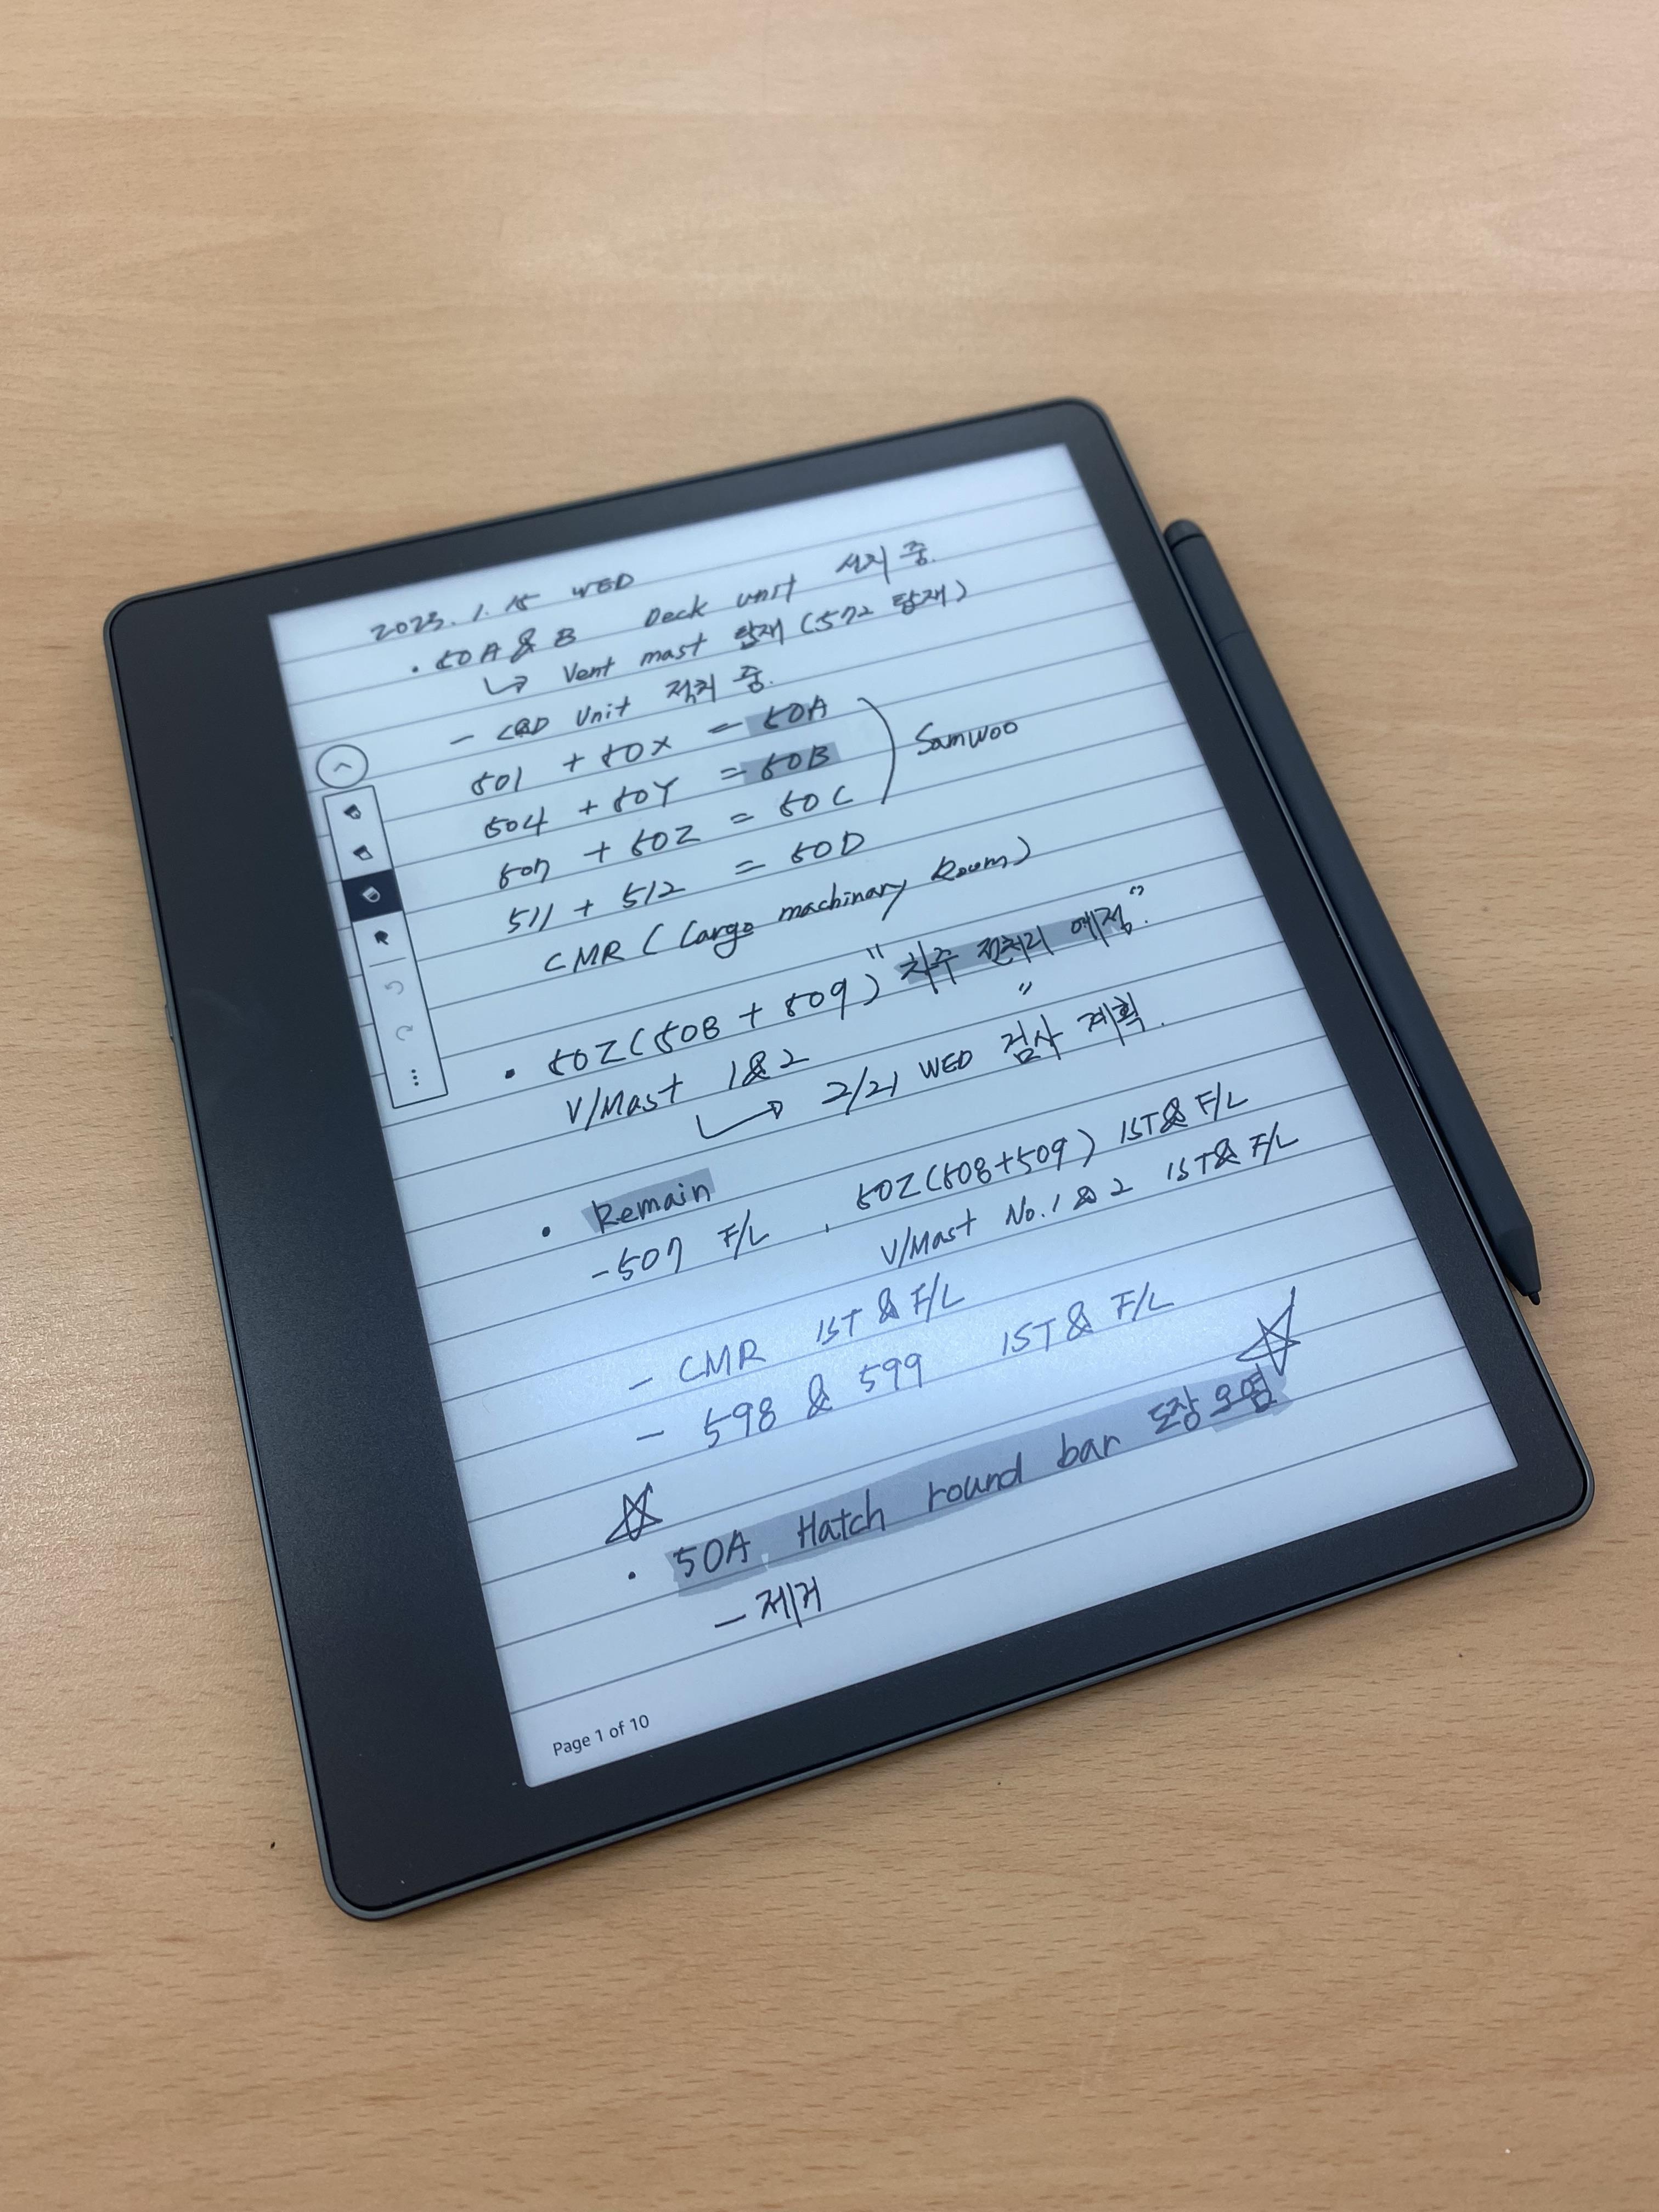 2023. 1. 15 WED
· 50A & B Deck unit 설치 중.
↳ Vent mast 탑재 (572 탑재)
- Unit 적치 중.
501 + 50X = 50A
504 + 50Y = 50B
507 + 50Z = 50C
Samwoo
511 + 512 = 50D
CMR ( Cargo machinary Room )
· 50Z (508 + 509) " 차주 전처리 예정".
V/Mast 1&2 "
→ 2/21 WED 검사 계획.
· Remain
- 507 F/L , 50Z (508+509) 1ST & F/L
V/Mast No. 1 & 2 1ST & F/L
- CMR 1ST & F/L
- 598 & 599 1ST & F/L
· 50A Hatch round bar 도장 오염
- 제거
Page 1 of 10